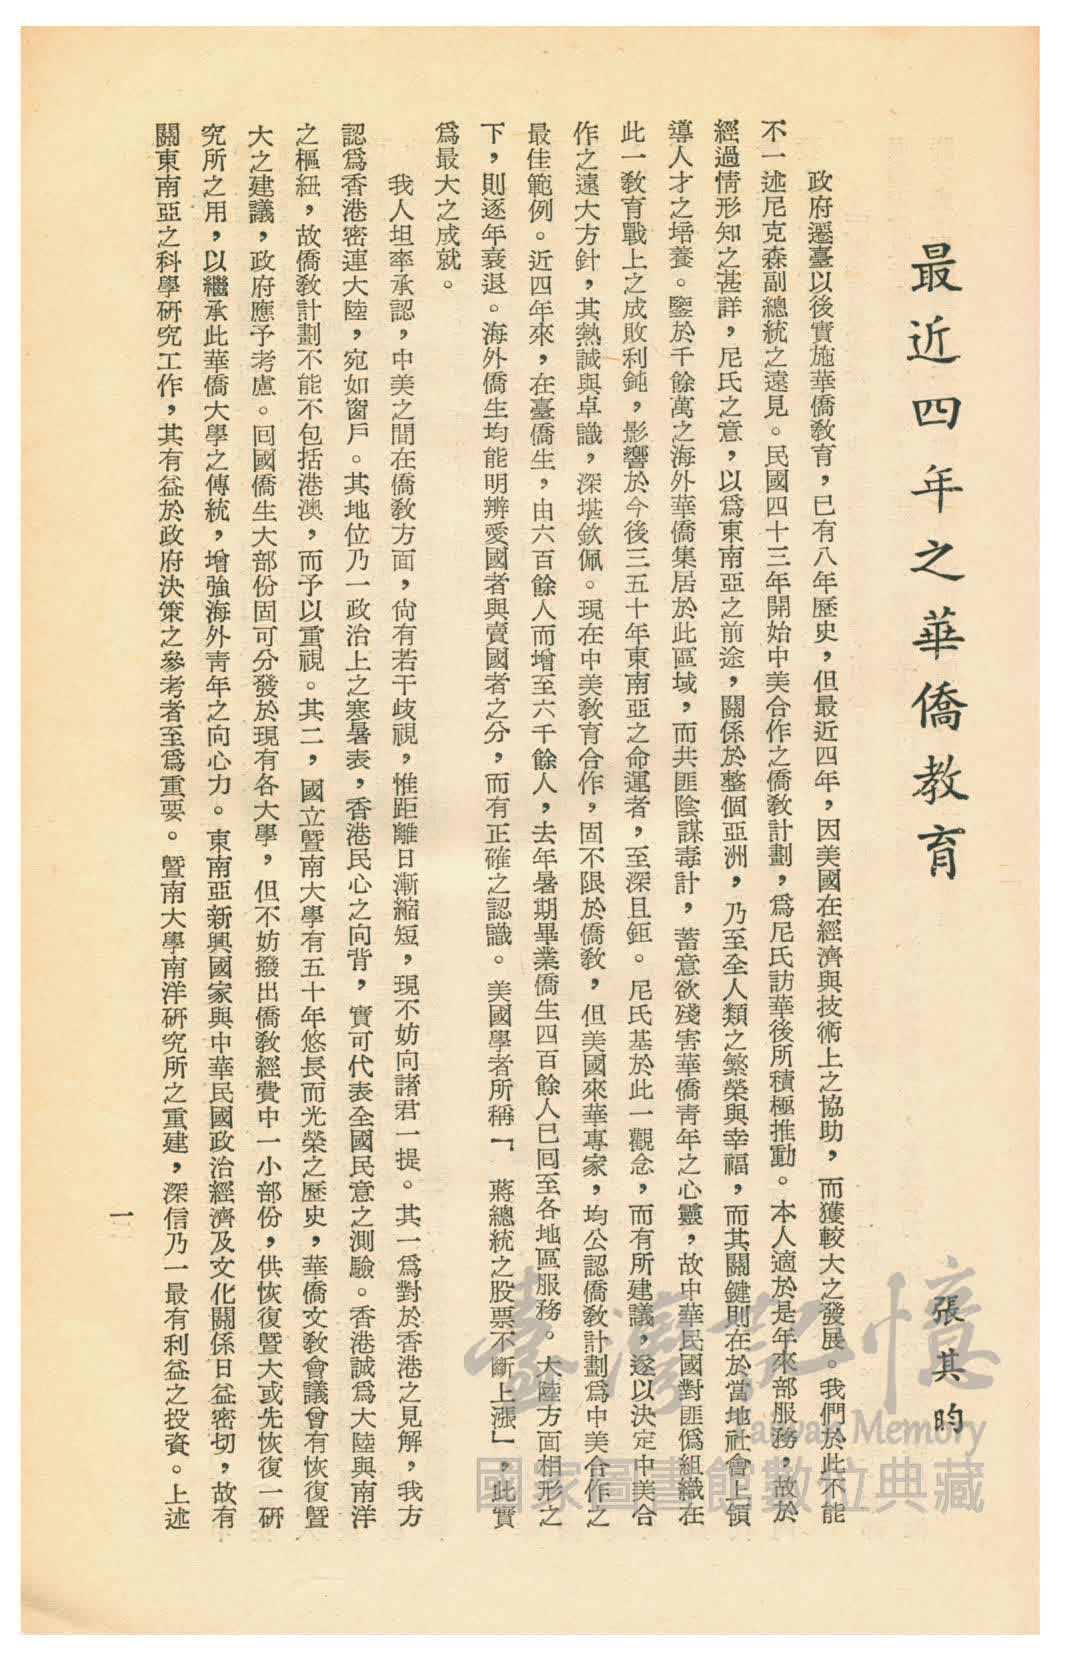 最近四年之華僑教育
張其昀
政府遷臺以後實施華僑教育，已有八年歷史，但最近四年，因美國在經濟與技術上之協助，而獲較大之發展。我們於此不能
不一述尼克森副總統之遠見。民國四十三年開始中美合作之僑教計劃，爲尼氏訪華後所積極推動。本人適於是年來部服務，故於
經過情形知之甚詳，尼氏之意，以爲東南亞之前途，關係於整個亞洲，乃至全人類之繁榮與幸福，而其關鍵則在於當地社會上領
導人才之培養。鑒於千餘萬之海外華僑集居於此區域，而共匪陰謀毒計，蓄意欲殘害華僑青年之心靈，故中華民國對匪僞組織在
此一教育戰上之成敗利鈍，影響於今後三五十年東南亞之命運者，至深且鉅。尼氏基於此一觀念，而有所建議，遂以決定中美合
作之遠大方針，其熱誠與卓識，深堪欽佩。現在中美教育合作，固不限於僑教，但美國來華專家，均公認僑教計劃爲中美合作之
最佳範例。近四年來，在臺僑生，由六百餘人而增至六千餘人，去年暑期畢業僑生四百餘人已回至各地區服務。大陸方面相形之
下，則逐年衰退。海外僑生均能明辨愛國者與賣國者之分，而有正確之認識。美國學者所稱「　蔣總統之股票不斷上漲」，此實
爲最大之成就。
我人坦率承認，中美之間在僑教方面，尙有若干歧視，惟距離日漸縮短，現不妨向諸君一提。其一爲對於香港之見解，我方
認爲香港密連大陸，宛如窗戶。其地位乃一政治上之寒暑表，香港民心之向背，實可代表全國民意之測驗。香港誠爲大陸與南洋
之樞紐，故僑教計劃不能不包括港澳，而予以重視。其二，國立暨南大學有五十年悠長而光榮之歷史，華僑文教會議曾有恢復暨
大之建議，政府應予考慮。回國僑生大部份固可分發於現有各大學，但不妨撥出僑教經費中一小部份，供恢復暨大或先恢復一研
究所之用，以繼承此華僑大學之傳統，增強海外青年之向心力。東南亞新興國家與中華民國政治經濟及文化關係日益密切，故有
關東南亞之科學研究工作，其有益於政府決策之參考者至爲重要。暨南大學南洋研究所之重建，深信乃一最有利益之投資。上述
一
臺灣記憶
Taiwan Memory
國家圖書館數位典藏